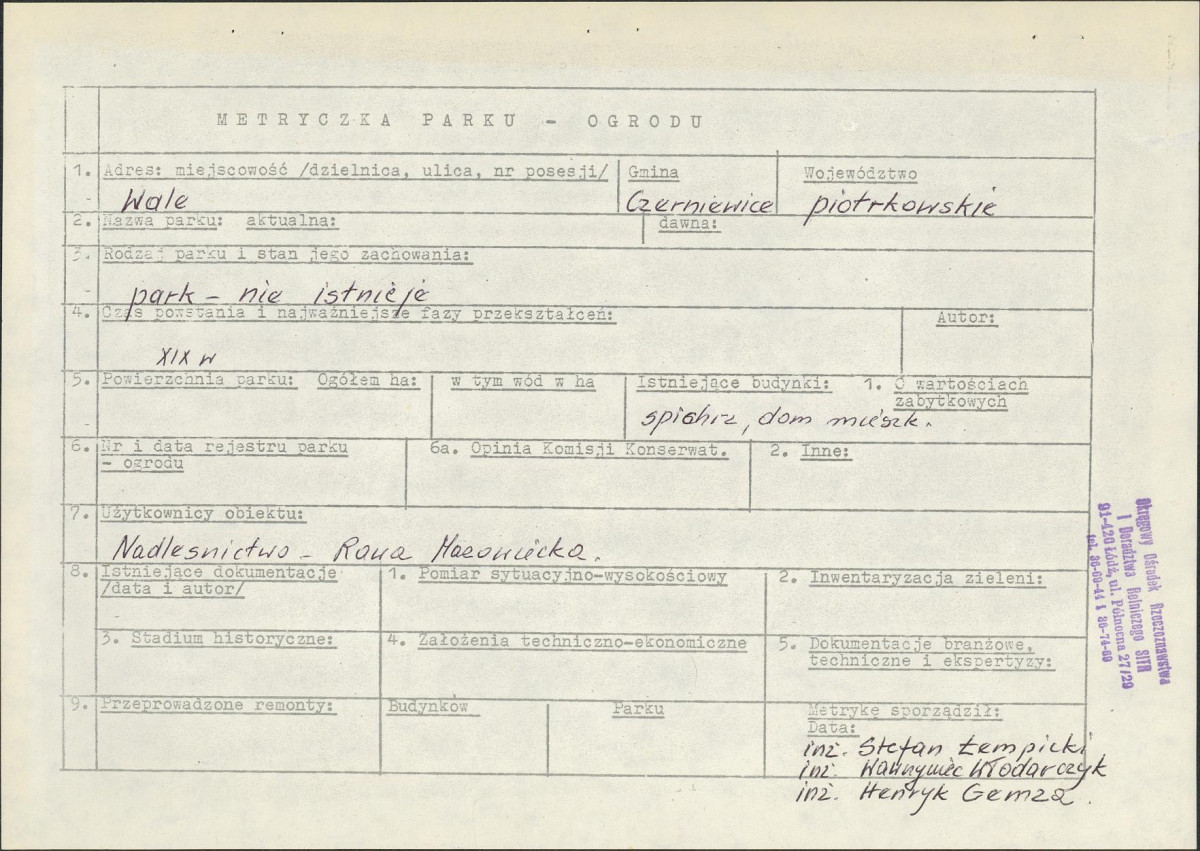 METRYCZKA PARKU - OGRODU
1. Adres: miejscowość /dzielnica, ulica, nr posesji/ Gmina Województwo
Wale Czerniewice piotrkowskie
2. Nazwa parku: aktualna: dawna:
3. Rodzaj parku i stan jego zachowania:
park - nie istnieje
4. Czas powstania i najważniejsze fazy przekształceń: Autor:
XIX w
5. Powierzchnia parku: Ogółem ha: w tym wód w ha Istniejące budynki: 1. O wartościach
zabytkowych
spichrz, dom mieszk.
6. Nr i data rejestru parku 6a. Opinia Komisji Konserwat. 2. Inne:
- ogrodu
7. Użytkownicy obiektu:
Nadleśnictwo - Rawa Mazowiecka.
8. Istniejące dokumentacje 1. Pomiar sytuacyjno-wysokościowy 2. Inwentaryzacja zieleni:
/data i autor/
3. Stadium historyczne: 4. Założenia techniczno-ekonomiczne 5. Dokumentacje branżowe,
techniczne i ekspertyzy:
9. Przeprowadzone remonty: Budynków Parku Metrykę sporządził:
Data:
inż. Stefan Łempicki
inż. Włodarczyk
inż. Henryk Gemza.
Okręgowy Ośrodek Rzeczoznawstwa
i Doradztwa Rolniczego SITR
91-420 Łódź, ul. Północna 27/29
tel. 36-60-44 i 36-74-69